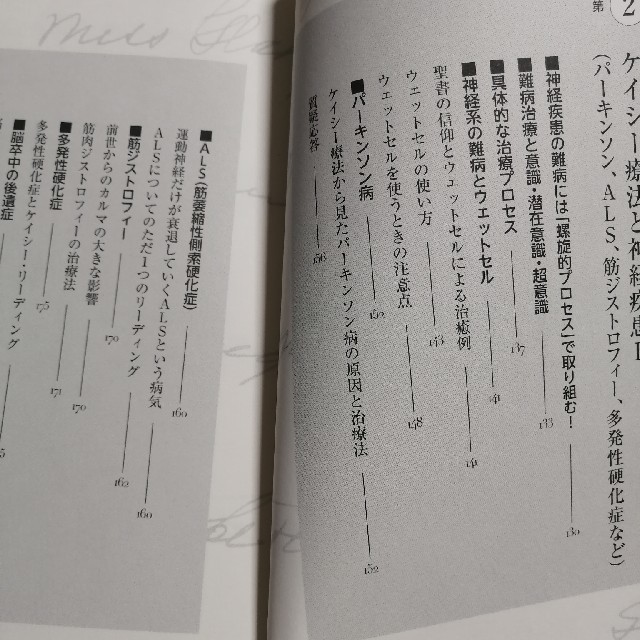 第 2
ケイシー療法と神経疾患Ⅰ
（パーキンソン、ALS、筋ジストロフィー、多発性硬化症など）
■神経疾患の難病には「螺旋的プロセス」で取り組む！ 130
■難病治療と意識・潜在意識・超意識 133
■具体的な治療プロセス 137
■神経系の難病とウェットセル 141
聖書の信仰とウェットセルによる治癒例 141
ウェットセルの使い方 143
ウェットセルを使うときの注意点 148
■パーキンソン病 152
ケイシー療法から見たパーキンソン病の原因と治療法 152
質疑応答 156
■ALS（筋萎縮性側索硬化症） 160
運動神経だけが衰退していくALSという病気 160
ALSについてのただ1つのリーディング 162
■筋ジストロフィー 170
前世からのカルマの大きな影響 170
筋肉ジストロフィーの治療法 171
■多発性硬化症 175
多発性硬化症とケイシー・リーディング
■脳卒中の後遺症